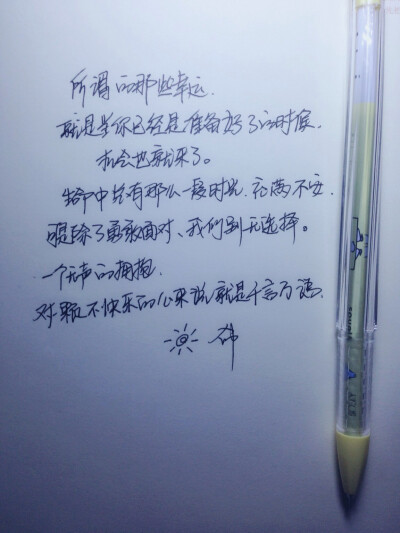 所谓的那些幸运.
就是当你已经是准备好了的时候.
机会也就来了。
生命中总有那么一段时光.充满不安.
可是除了勇敢面对、我们别无选择。
一个无声的拥抱.
对颗不快乐的心来说就是千言万语.